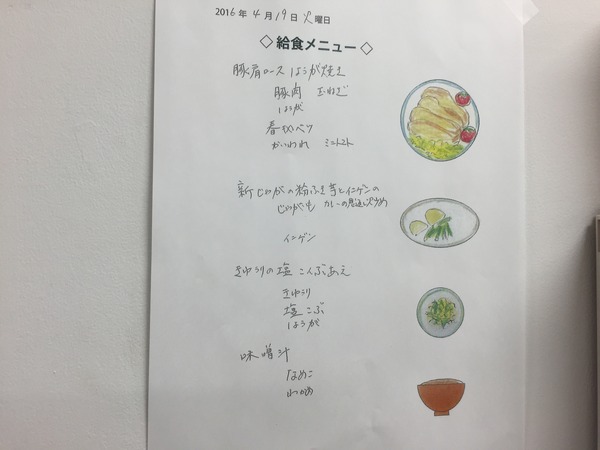 2016年4月19日火曜日
◇給食メニュー◇
豚肩ロースしょうが焼き
豚肉 玉ねぎ
しょうが
春キャベツ
かいわれ ミニトマト
新じゃがの粉ふき芋とインゲンの
じゃがいも カレーの風味炒め
インゲン
きゅうりの塩こんぶあえ
きゅうり
塩こぶ
しょうが
味噌汁
なめこ
わかめ